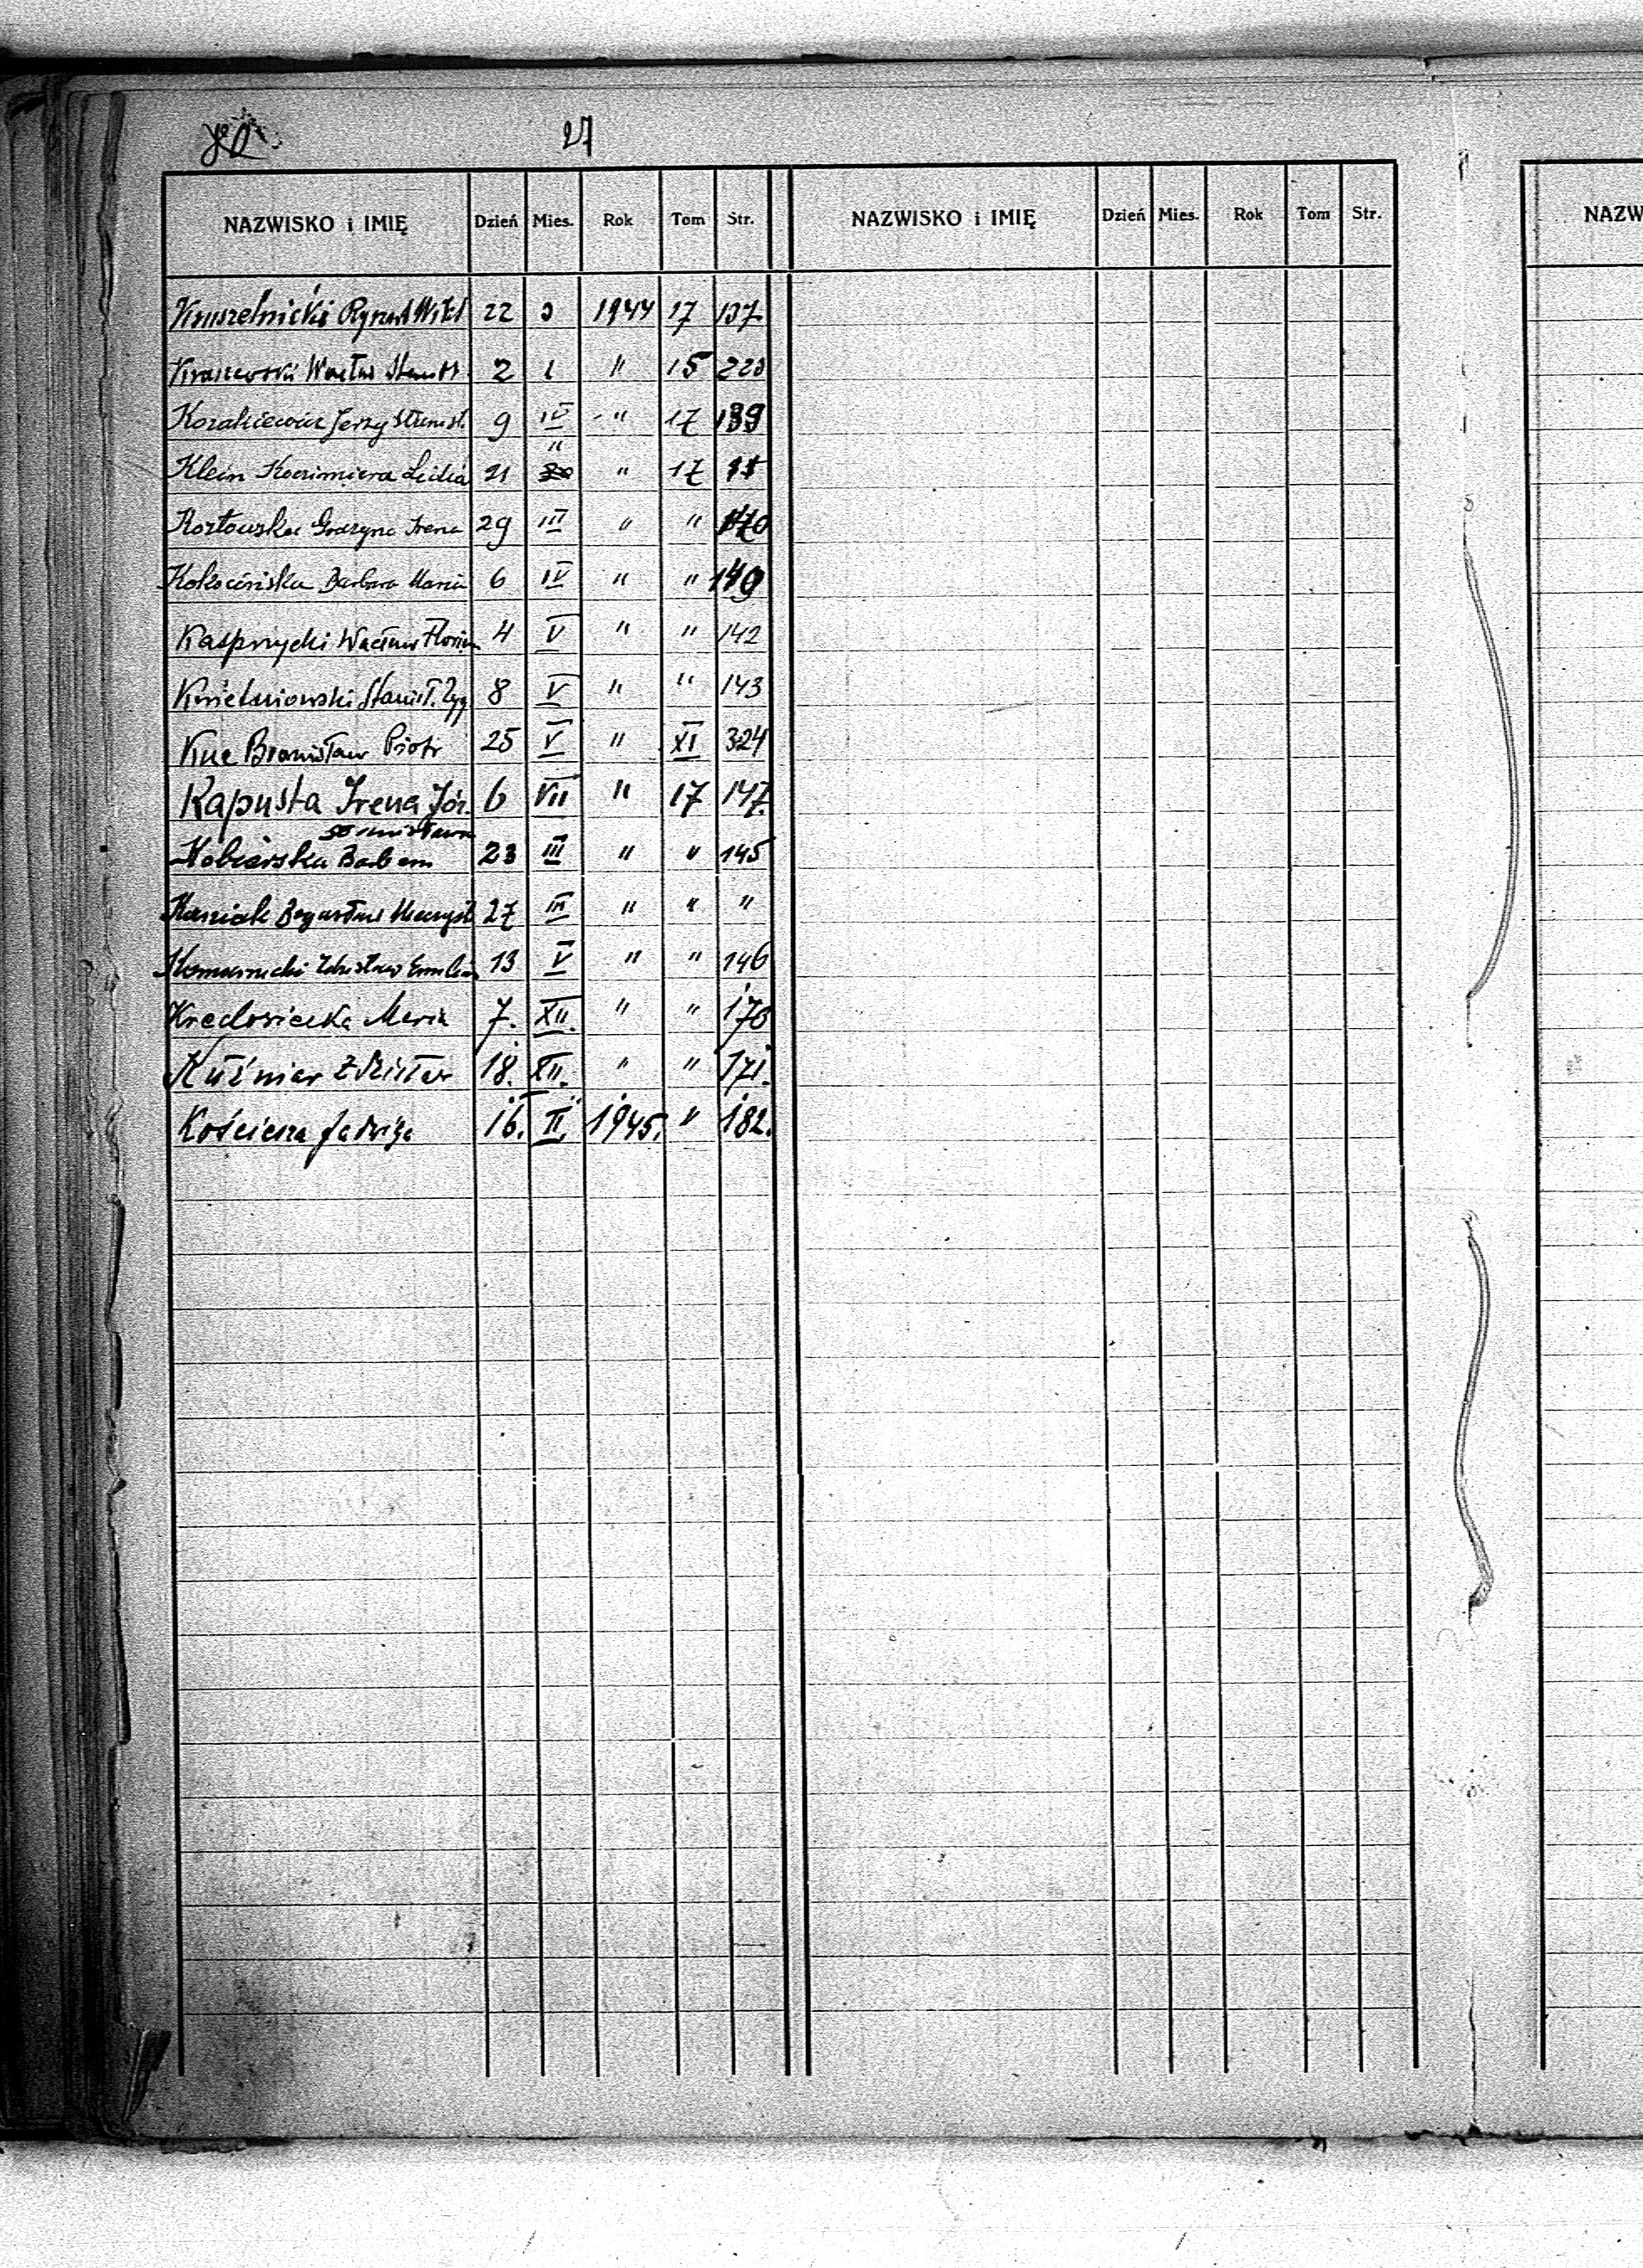 27
NAZWISKO i IMIĘ Dzień Mies. Rok Tom Str. NAZWISKO i IMIĘ Dzień Mies. Rok Tom Str. NAZW
Kruszelnicki 22 3 1944 17 137
Kraszewski Wacław 2 1 " 15 223
Kozakiewicz Jerzy Stanisł. 9 IV " 17 139
Klein Kazimiera Lidia 21 " " 17
Kozłowska Grażyna Irena 29 III " " 140
Kokocińska Barbara Maria 6 IV " " 149
Kasprzycki Wacław Florian 4 V " " 142
Kwietniowski Stanisł. Zyg. 8 V " " 143
Kuc Bronisław Piotr 25 V " XI 324
Kapusta Irena Józ. 6 VII " 17 147.
Kobierska Barbara 23 III " " 145
Bogusław Mieczysł 27 III " " "
Komarnicki Zdzisław Emilian 13 V " " 146
Maria 7. XII. " " 170
Kuźniar Zdzisław 18. XII. " " 171.
Kościesza Jadwiga 16. II. 1945. " 182.